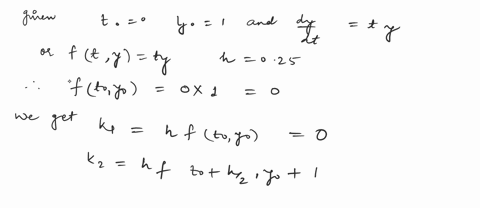 given t₀ = 0 y₀ = 1 and dy/dt = t y
or f(t, y) = ty h = 0.25
∴ f(t₀, y₀) = 0 × 1 = 0
we get k₁ = h f(t₀, y₀) = 0
k₂ = h f t₀ + h/2, y₀ + 1